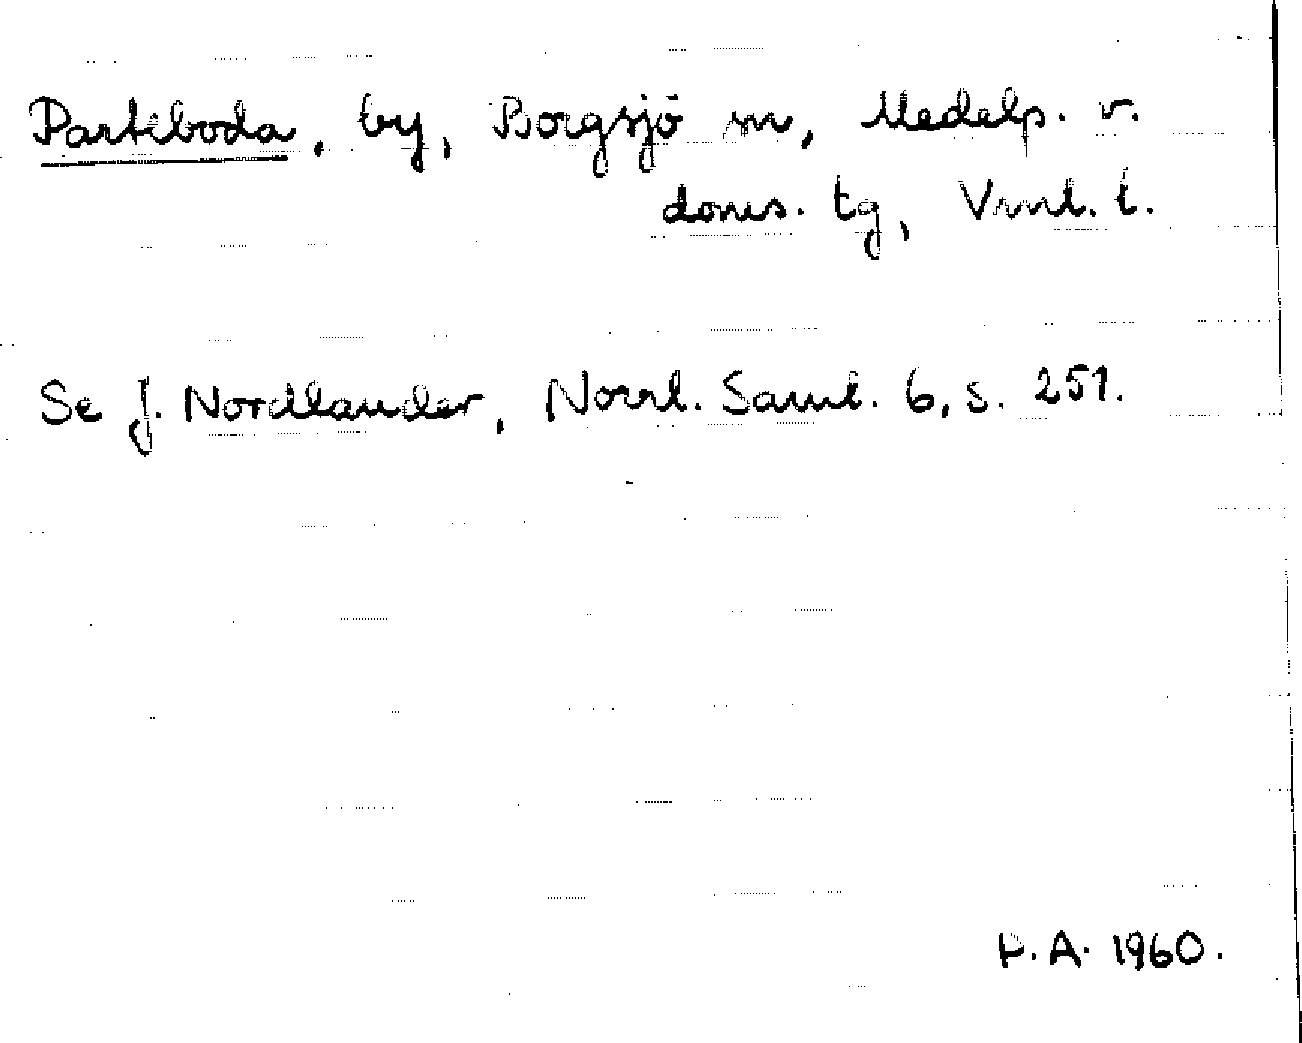 Parteboda, by, Borgsjö sn, Medelp. v.
doms. tg, Vrnl. l.
Se J. Nordlander, Norrl. Saml. 6, s. 251.
P. A. 1960.